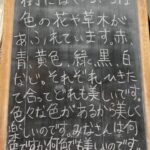 色の花や草木が
あふれています。赤、
青、黄色、緑、黒、白
など、それぞれ、ひきた
て合ってどれも美しいです。
色々な色があるから美しく
楽しいのです。みなさんは何
色ですか何色でも美しいです。